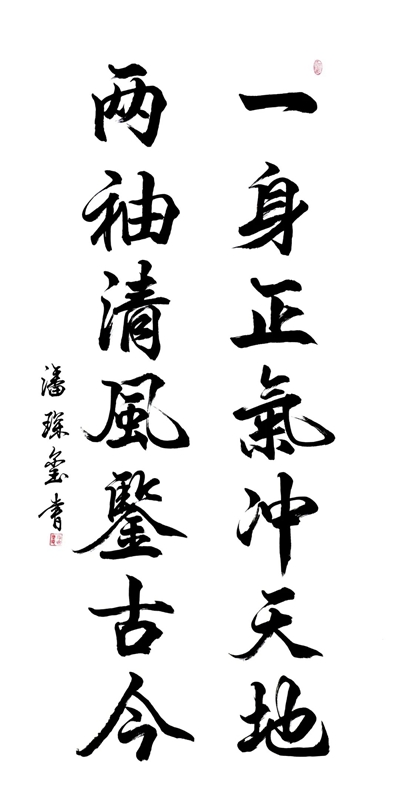 一身正氣冲天地
两袖清風鑒古今
潘琛玺書